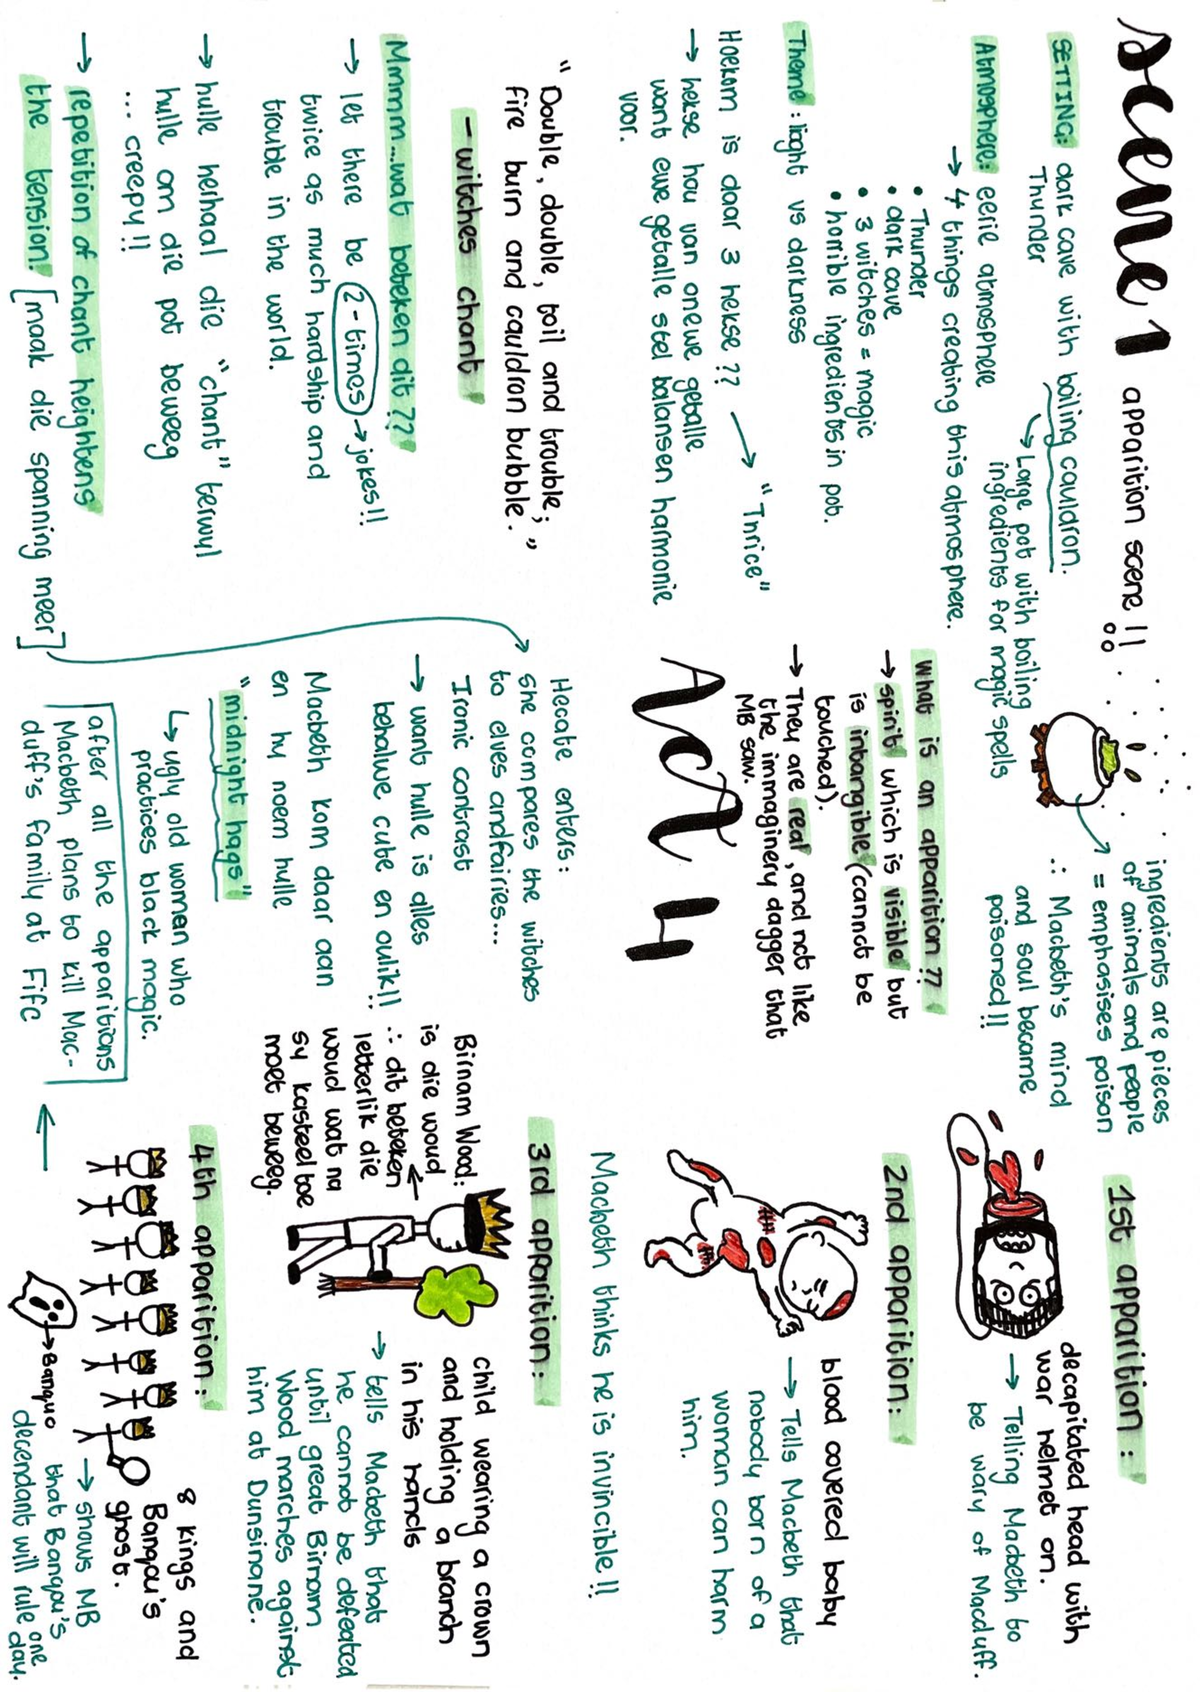 Scene 1 apparition scene !!
SETTING: dark cave with boiling cauldron.
Thunder
→ Large pot with boiling
ingredients for magic spells
Atmosphere: eerie atmosphere
→ 4 things creating this atmosphere.
• Thunder
• dark cave
• 3 witches = magic
• horrible ingredients in pot.
Theme: light vs darkness
Hoekom is daar 3 hekse ?? → "Thrice"
→ hekse hou van onewe getalle
want ewe getalle stel balansen harmonie
voor.
ingredients are pieces
of animals and people
= emphasises poison
∴ Macbeth's mind
and soul became
poisoned!!
What is an apparition ??
→ spirit which is visible but
is intangible (cannot be
touched).
→ They are real, and not like
the immaginery dagger that
MB saw.
Act 4
"Double, double, toil and trouble;
fire burn and cauldron bubble."
- witches chant
Mmmm...wat beteken dit ??
→ let there be 2-times → jokes!!
twice as much hardship and
trouble in the world.
→ hulle herhaal die "chant" terwyl
hulle om die pot beweeg
... creepy!!
→ repetition of chant heightens
the tension! [maak die spanning meer]
Hecate enters:
she compares the witches
to elves andfairies...
Ironic contrast
→ want hulle is alles
behalwe cute en oulik!!
Macbeth kom daar aan
en hy noem hulle
"midnight hags"
↳ ugly old women who
practices black magic.
after all the apparitions
Macbeth plans to kill Mac-
duff's family at Fife
1st apparition:
decapitated head with
war helmet on.
→ Telling Macbeth to
be wary of Macduff.
2nd apparition:
blood covered baby
→ Tells Macbeth that
nobody born of a
woman can harm
him.
Macbeth thinks he is invincible!!
3rd apparition:
child wearing a crown
and holding a branch
in his hands
→ tells Macbeth that
he cannot be defeated
until great Birnam
Wood marches against
him at Dunsinane.
Birnam Wood:
is die woud
∴ dit beteken
letterlik die
woud wat na
sy kasteel toe
moet beweeg.
4th apparition:
8 kings and
Banqou's
ghost.
→ shows MB
that Banqou's
decendant will rule one
day.
→ Banquo